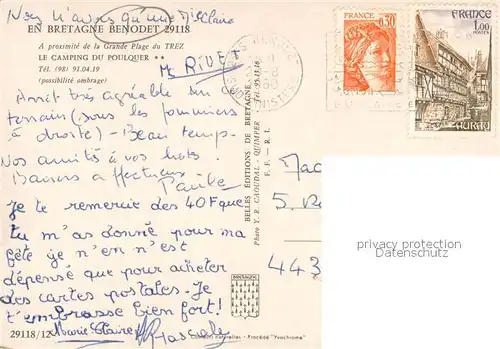 Nous n'avons qu'une
EN BRETAGNE BENODET 29118
A proximité de la Grande Plage du TREZ
LE CAMPING DU POULQUER **
Tél. (98) 91.04.19
(possibilité ombrage)
M RIVET
Arrêt très agréable sur ce
terrain (sous les pommiers
à droite) - Beau temps -
Nos amitiés à vos hôtes.
Baisers affectueux
Paule
Je te remercie des 40F que
tu m'as donné pour ma
fête je n'en n'est
dépensé que pour acheter
des cartes postales. Je
t'embrasse bien fort!
Marie Claire
Pascale
29118/12
BELLES ÉDITIONS DE BRETAGNE
Photo Y. R. CAOUDAL - QUIMPER
F. F. - R. I.
BRETAGNE
Couleurs naturelles - Procédé "Yvochrome"
0.30
FRANCE
1,00
POSTES
AURAY
5. R
443
privacy protection
Datenschutz